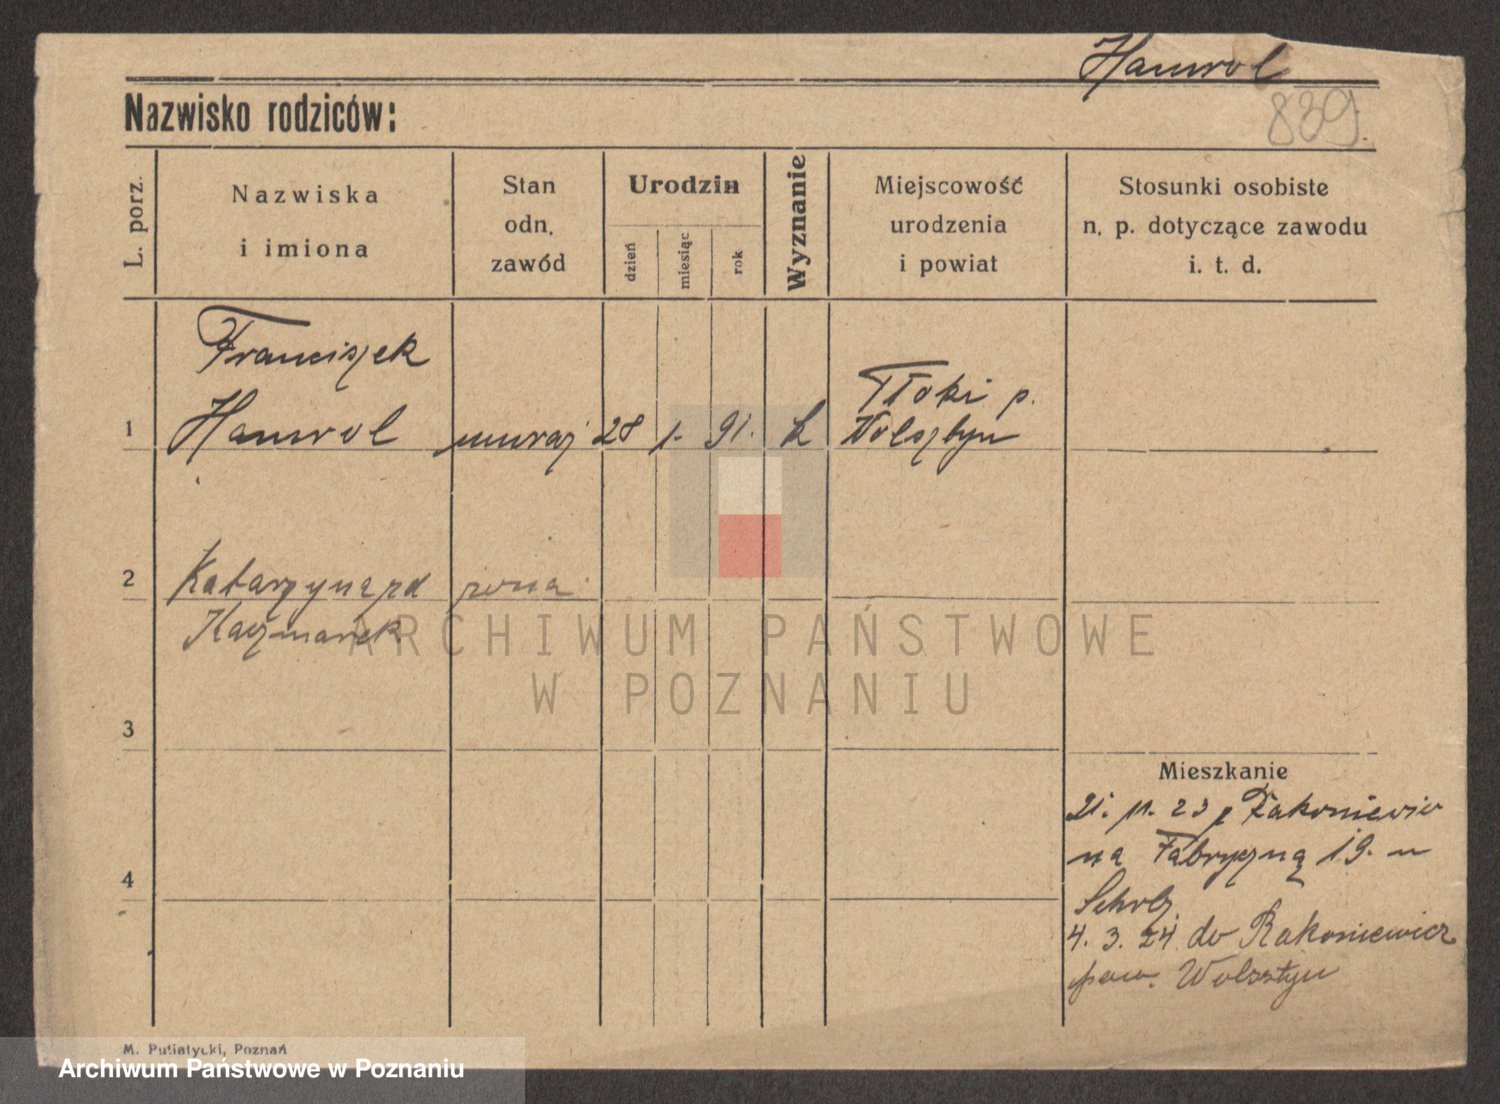 Hamrol
839.
Nazwisko rodziców:
L. porz.
Nazwiska
i imiona
Stan
odn.
zawód
Urodzin
dzień
miesiąc
rok
Wyznanie
Miejscowość
urodzenia
i powiat
Stosunki osobiste
n. p. dotyczące zawodu
i. t. d.
Franciszek
1 Hamrol muraj 28 1. 91. k Tłoki p.
Wolsztyn
2 Katarzyna zd żona
Kaczmarek
ARCHIWUM PAŃSTWOWE
W POZNANIU
3
Mieszkanie
21. 11. 23 z Rakoniewic
na Fabryczną 19. u
4
Scholz.
4. 3. 24 do Rakoniewicz
pow. Wolsztyn
M. Putiatycki, Poznań
Archiwum Państwowe w Poznaniu